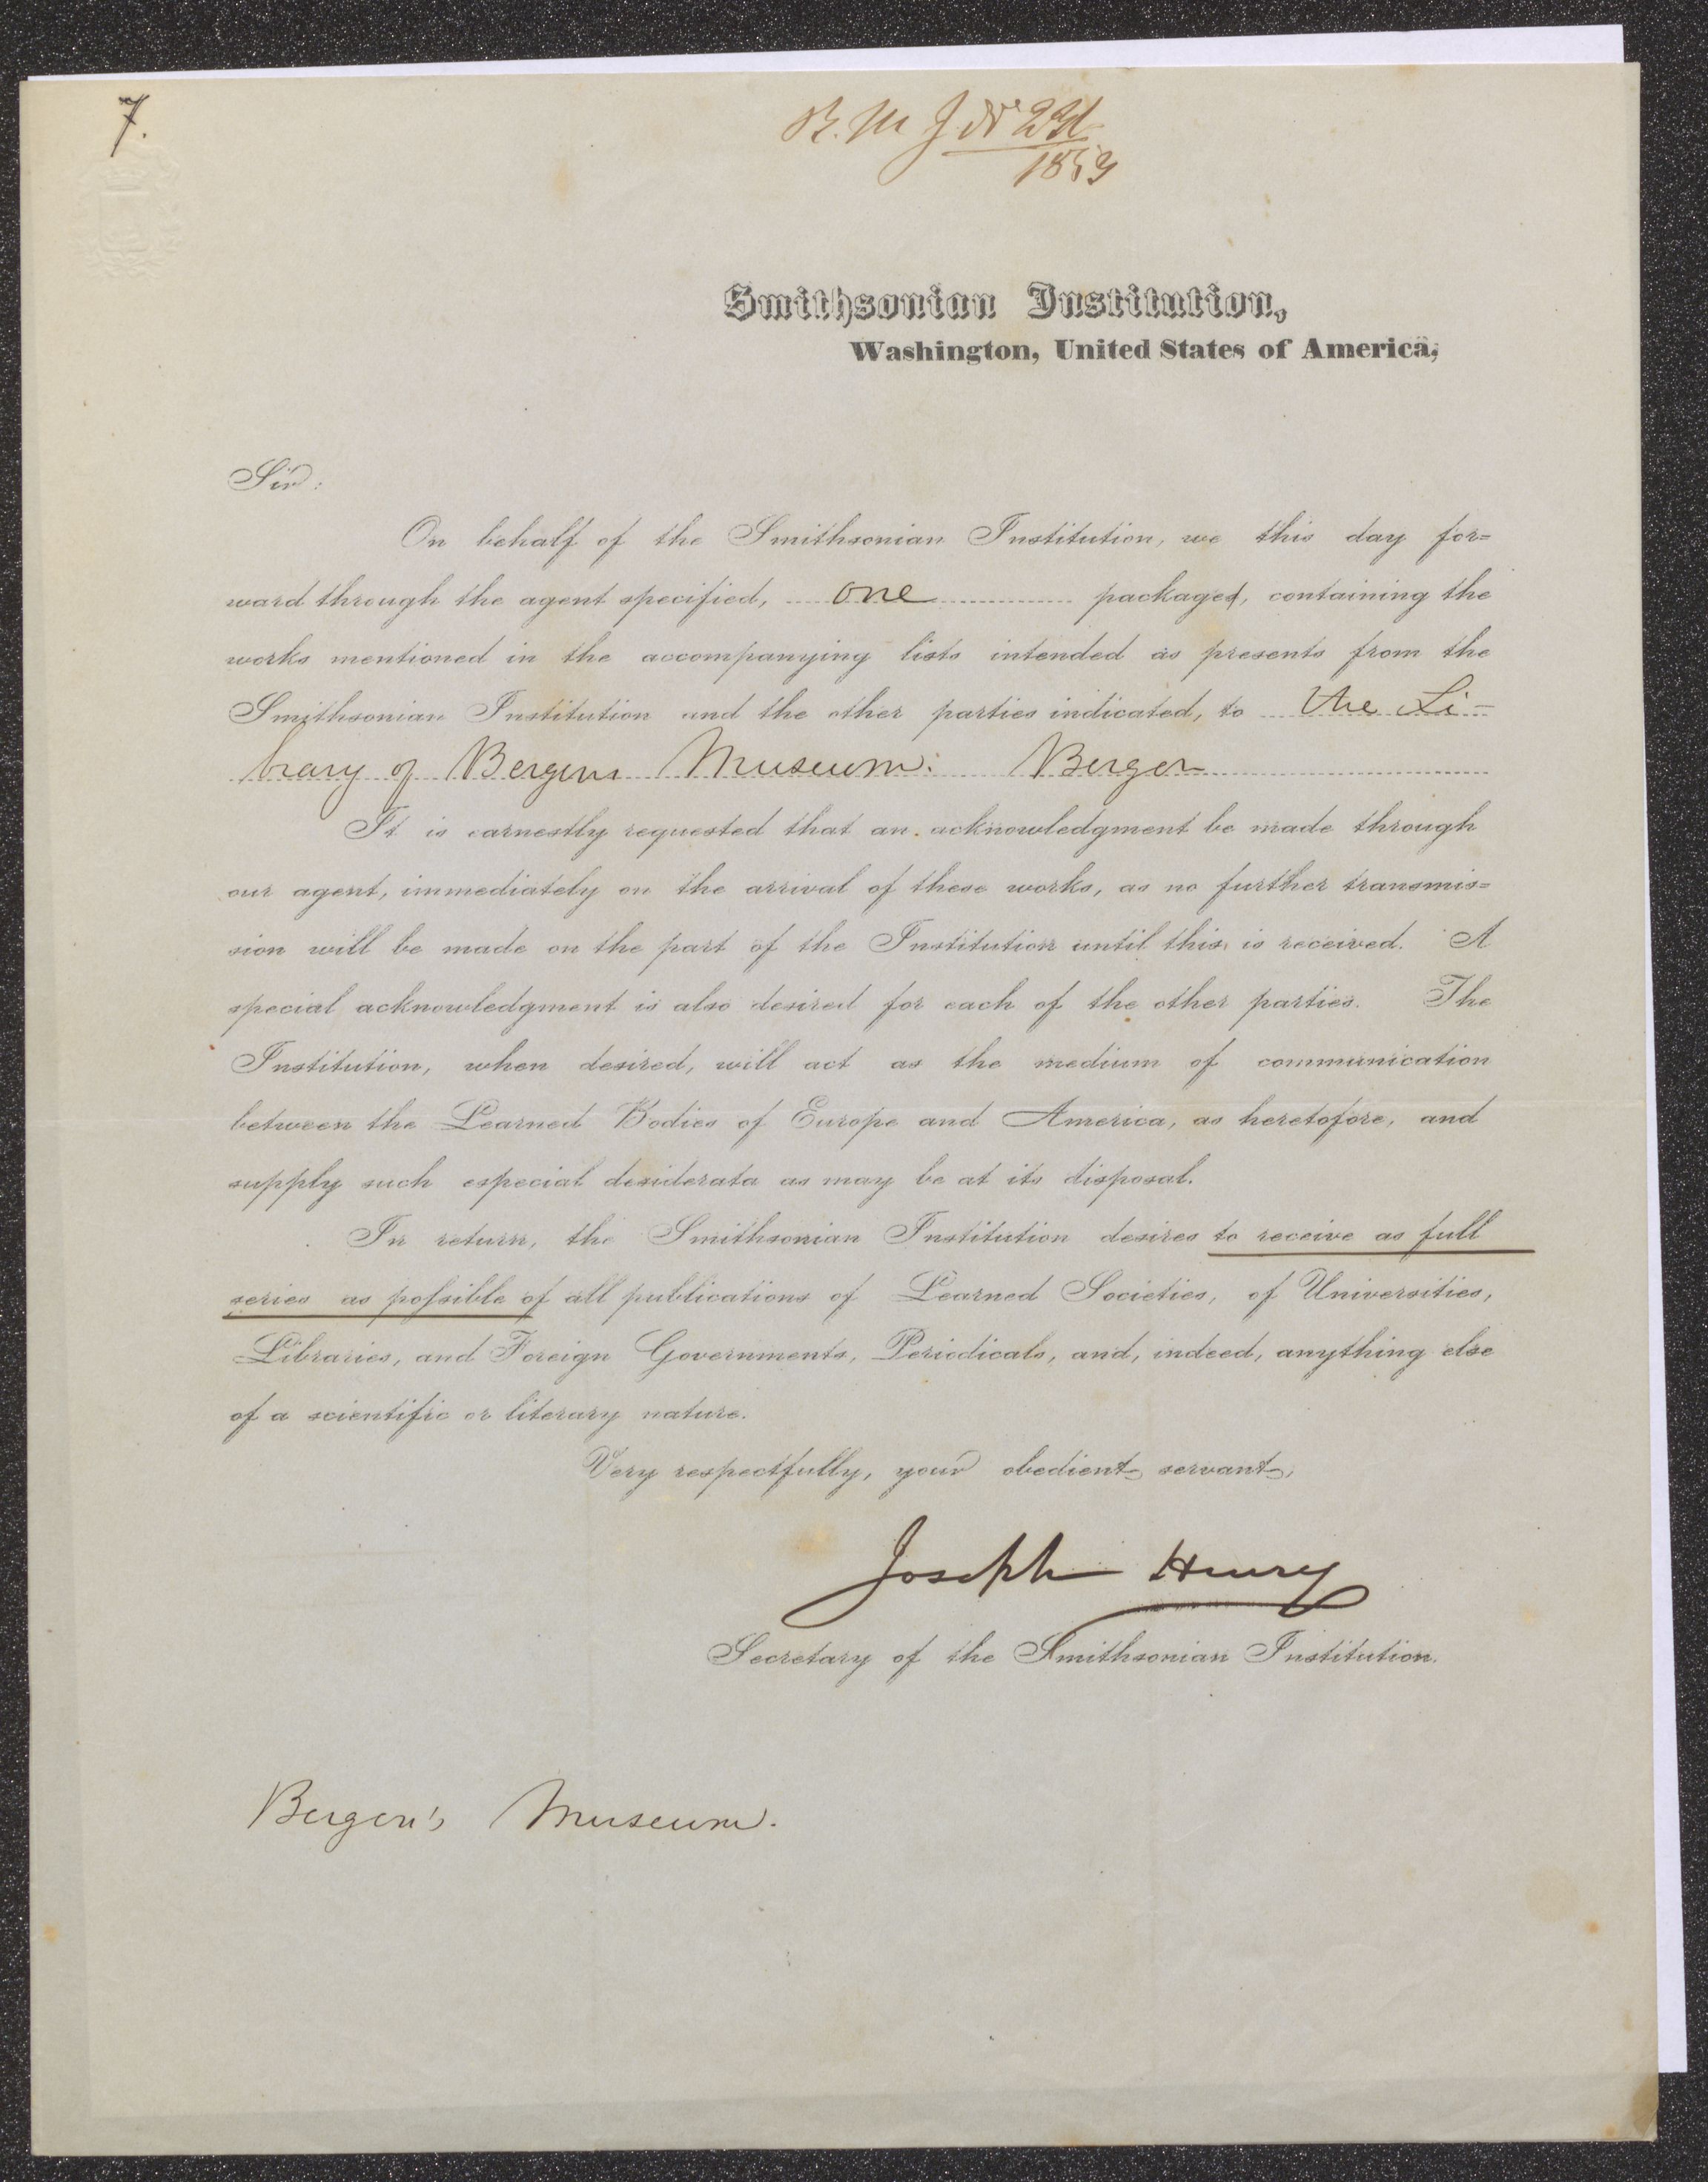 7.
B. M. J. N° 231
1859
Smithsonian Institution,
Washington, United States of America,
Sir:
On behalf of the Smithsonian Institution, we this day for=
ward through the agent specified, one packages, containing the
works mentioned in the accompanying lists intended as presents from the
Smithsonian Institution and the other parties indicated, to the Li-
brary of Bergens Museum: Bergen
It is earnestly requested that an acknowledgment be made through
our agent, immediately on the arrival of these works, as no further transmis=
sion will be made on the part of the Institution until this is received. A
special acknowledgment is also desired for each of the other parties. The
Institution, when desired, will act as the medium of communication
between the Learned Bodies of Europe and America, as heretofore, and
supply such especial desiderata as may be at its disposal.
In return, the Smithsonian Institution desires to receive as full
series as possible of all publications of Learned Societies, of Universities,
Libraries, and Foreign Governments, Periodicals, and, indeed, anything else
of a scientific or literary nature.
Very respectfully, your obedient servant,
Joseph Henry
Secretary of the Smithsonian Institution.
Bergen's Museum.